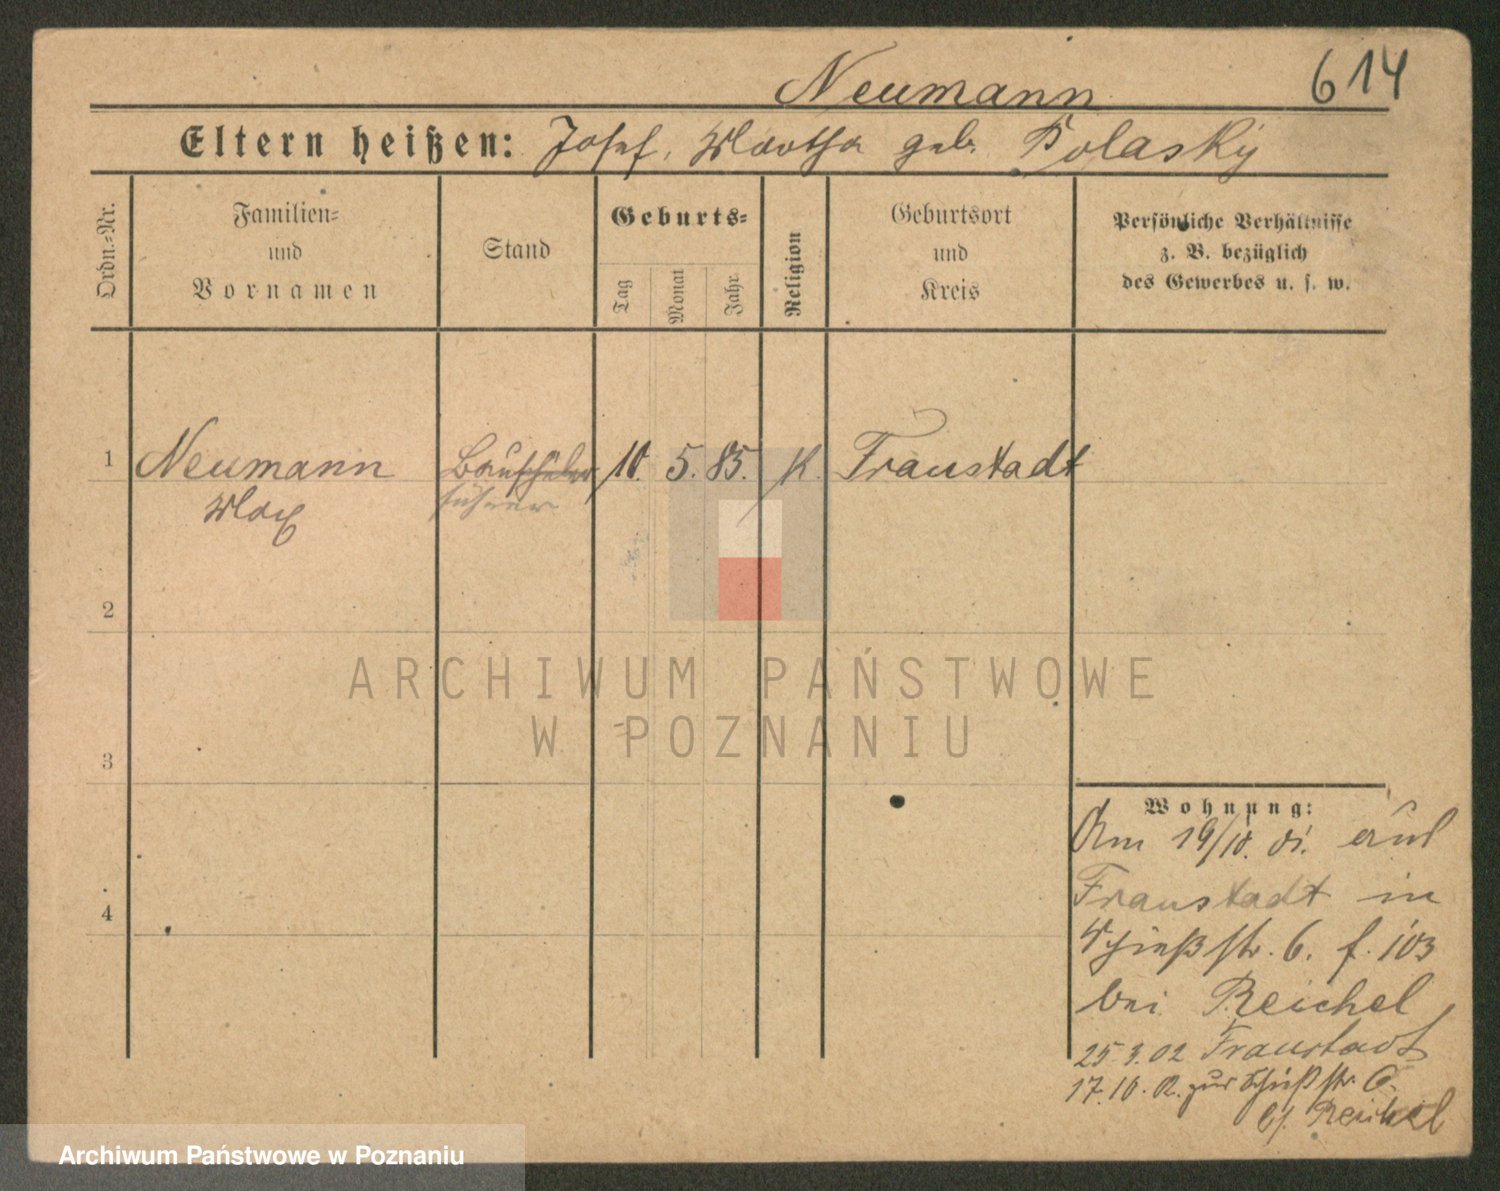 Neumann
614
Eltern heißen: Josef, Martha geb. Polasky
Ordn.=Nr.
Familien=
und
Vornamen
Stand
Geburts=
Tag
Monat
Jahr
Religion
Geburtsort
und
Kreis
Persönliche Verhältnisse
z. B. bezüglich
des Gewerbes u. s. w.
1 Neumann Bauschüler 10. 5. 85. K. Fraustadt
Max führer
2
3
4
Wohnung:
Am 19/10. 01. aus
Fraustadt in
Schießstr. 6. f. 103
bei Reichel
25.3.02 Fraustadt
17.10. 02. zur Schießstr. 6.
b/. Reichel
ARCHIWUM PAŃSTWOWE
W POZNANIU
Archiwum Państwowe w Poznaniu